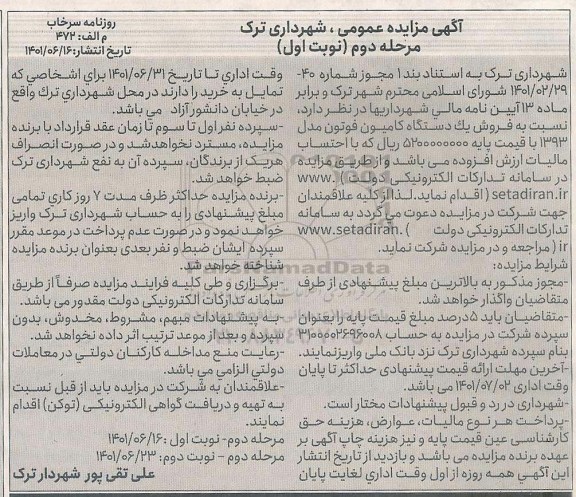 روزنامه سرخاب
م الف: ۴۷۲
تاریخ انتشار:۱۴۰۱/۰۶/۱۶
آگهی مزایده عمومی ، شهرداری ترک
مرحله دوم (نوبت اول)
شهرداری ترک به استناد بند۱ مجوز شماره ۴۰-
۱۴۰۱/۰۲/۲۹ شورای اسلامی محترم شهر ترک و برابر
ماده ۱۳ آیین نامه مالی شهرداریها در نظر دارد،
نسبت به فروش یك دستگاه کامیون فوتون مدل
۱۳۹۳ با قیمت پایه ۵۲۰۰۰۰۰۰۰۰ ریال که با احتساب
مالیات ارزش افزوده می باشد و از طریق مزایده
در سامانه تدارکات الکترونیکی دولت( www.
setadiran.ir ) اقدام نماید. لذا از کلیه علاقمندان
جهت شرکت در مزایده دعوت می گردد به سامانه
تدارکات الکترونیکی دولت ( www.setadiran.
ir ) مراجعه و در مزایده شرکت نماید.
شرایط مزایده:
-مجوز مذکور به بالاترین مبلغ پیشنهادی از طرف
متقاضیان واگذار خواهد شد.
-متقاضیان باید ۵درصد مبلغ قیمت پایه را بعنوان
سپرده شرکت در مزایده به حساب ۳۱۰۰۰۰۲۶۹۶۰۰۸
بنام سپرده شهرداری ترک نزد بانک ملی واریزنمایند.
-آخرین مهلت ارائه قیمت پیشنهادی حداکثر تا پایان
وقت اداری ۱۴۰۱/۰۷/۰۲ می باشد.
-شهرداری در رد و قبول پیشنهادات مختار است.
-پرداخت هر نوع مالیات، عوارض، هزینه حق
کارشناسی عین قیمت پایه و نیز هزینه چاپ آگهی بر
عهده برنده مزایده می باشد و بازدید از تاریخ انتشار
این آگهي همه روزه از اول وقت اداري لغایت پایان
وقت اداري تا تاریخ ۱۴۰۱/۰۶/۳۱ براي اشخاصي که
تمایل به خرید را دارند در محل شهرداري ترك واقع
در خیابان دانشور آزاد می باشد.
-سپرده نفر اول تا سوم تا زمان عقد قرارداد با برنده
مزایده، مسترد نخواهد شد و در صورت انصراف
هر یک از برندگان، سپرده آن به نفع شهرداری ترک
ضبط خواهد شد.
-برنده مزایده حداکثر ظرف مدت ۷ روز کاری تمامی
مبلغ پیشنهادی را به حساب شهرداری ترک واریز
خواهد نمود و در صورت عدم پرداخت در موعد مقرر
سپرده ایشان ضبط و نفر بعدی بعنوان برنده مزایده
شناخته خواهد شد.
-برگزاری و طی کلیه فرایند مزایده صرفاً از طریق
سامانه تدارکات الکترونیکی دولت مقدور می باشد.
-به پیشنهادات مبهم، مشروط، مخدوش، بدون
سپرده و بعد از موعد ترتیب اثر داده نخواهد شد.
-رعایت منع مداخله کارکنان دولتي در معاملات
دولتي الزامي مي باشد.
-علاقمندان به شرکت در مزایده باید از قبل نسبت
به تهیه و دریافت گواهی الکترونیکی (توکن) اقدام
نمایند.
مرحله دوم- نوبت اول :۱۴۰۱/۰۶/۱۶
مرحله دوم – نوبت دوم: ۱۴۰۱/۰۶/۲۳
علی تقی پور شهردار ترک
ParsNamadData